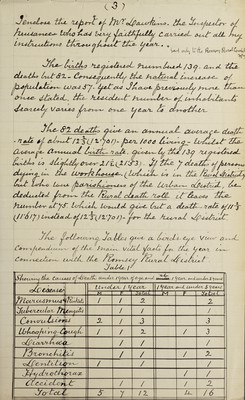 ( 3 )
I enclose the report of Mr Dawkins, the Inspector of
Nuisances who has very faithfully carried out all my
instructions throughout the year.
The births registered numbered 139. and the
deaths but 82. Consequently the natural increase of
population was 57. Yet as I have previously more than
once stated, the resident number of inhabitants
scarcely varies from one year to another.
The 82 deaths give an annual average death
-rate of about 12¾ (12.701). per 1000 living – whilst the
average annual birth-rate given by the 139 registered
births is slightly over 21½ (21.53). If the 7 deaths of persons
dying in the workhouse, (which is in the Rural District)
but who were parishioners of the Urban District, be
deducted from the Rural death-rate it leaves the
number at 75 which would give but a death-rate of 11½
(11.617) instead of 12¾ (12.701). for the rural District
The following Tables give a birds-eye view and
comparison of the main vital facts for the year in
connection with the Romsey Rural District
Table 1
Showing the causes of Death under 1 year of age and 1 year and under 5 years
Disease Under 1 year 1 year and under 5 years
M F Total M Total
Marasmus & Rickets 1 1 2 2
Tubercular Meningitis 1 1 1
Convulsions 2 1 3 3
Whooping Cough 1 1 2 1 3
Diarrhœa 1 1 1
Bronchitis 1 1 1 2
Dentition 1 1
Hydrothorax 1 1
Accident 1 1 1 2
Total 5 7 12 4 16